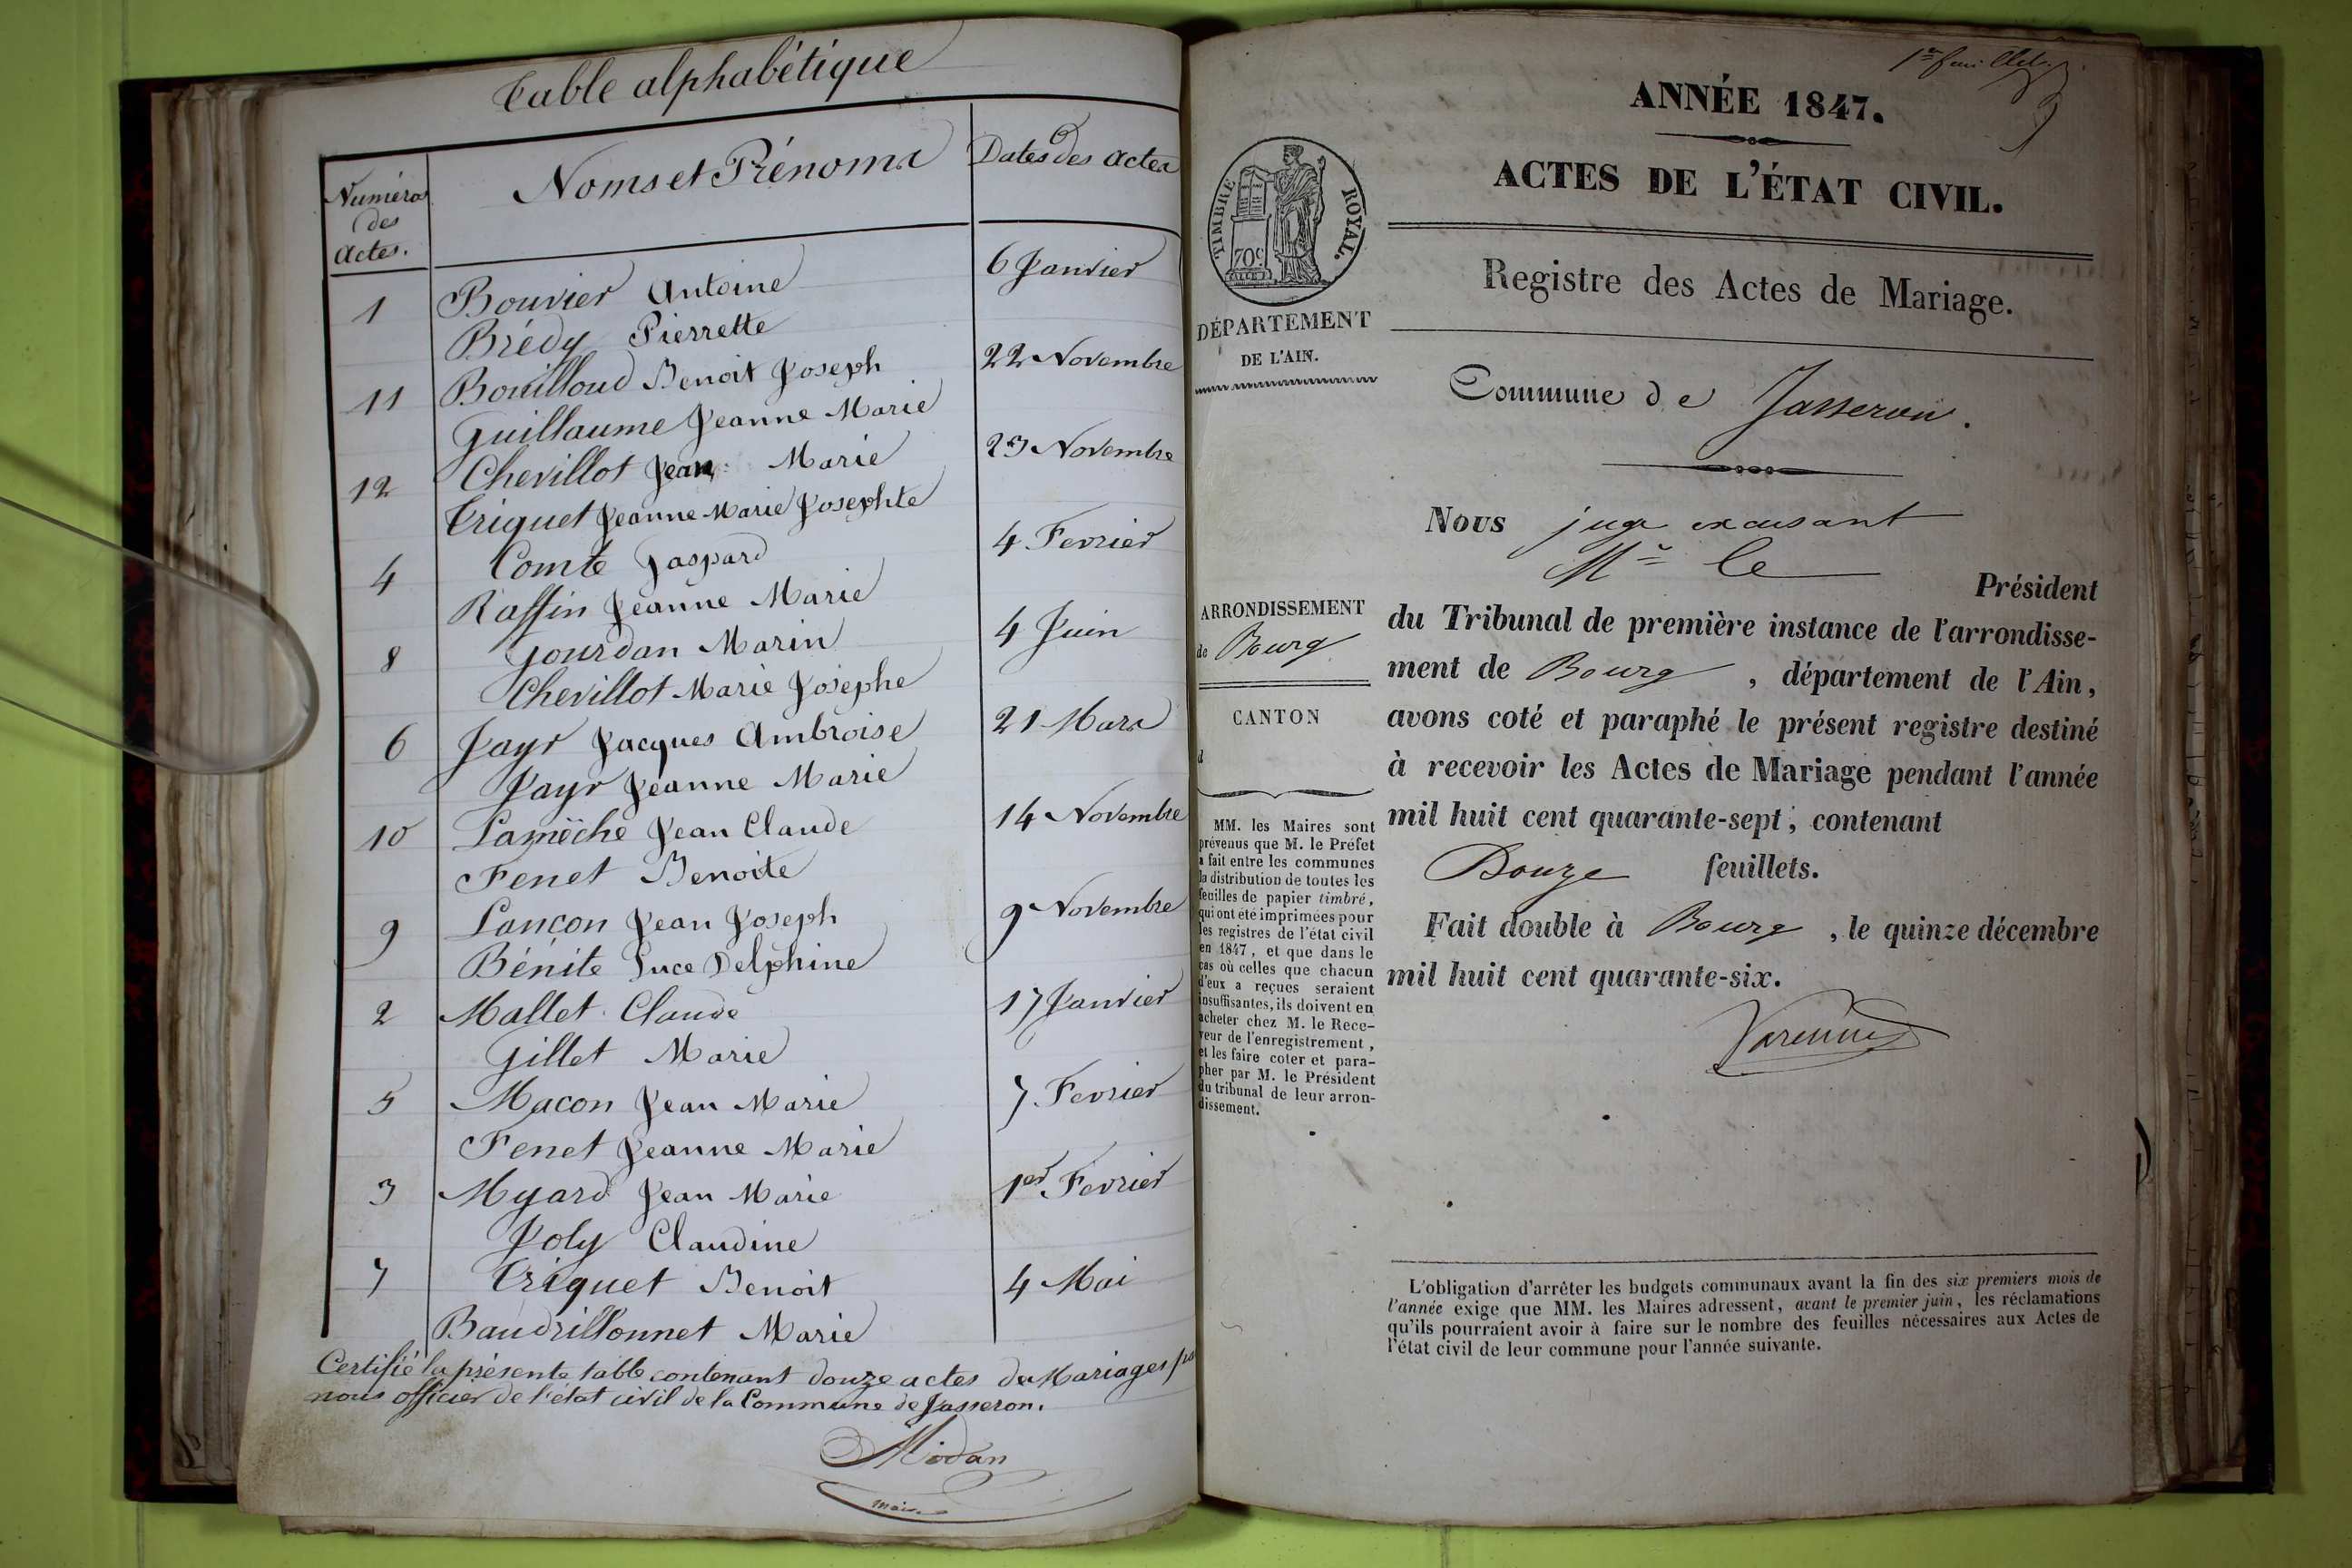 Table alphabétique
Numéros des Actes.
Noms et Prénoms
Dates des actes
1 Bouvier Antoine 6 Janvier
Brédy Pierrette
11 Bouilloud Benoit Joseph 22 Novembre
Guillaume Jeanne Marie
12 Chevillot Jean Marie 23 Novembre
Triquet Jeanne Marie Josephte
4 Comte Gaspard 4 Fevrier
Raffin Jeanne Marie
8 Jourdan Marin 4 Juin
Chevillot Marie Josephe
6 Jayr Jacques Ambroise 21 Mars
Jayr Jeanne Marie
10 Lamèche Jean Claude 14 Novembre
Fenet Benoite
9 Lancon Jean Joseph 9 Novembre
Bénite Luce Delphine
2 Mallet Claude 17 Janvier
Gillet Marie
5 Macon Jean Marie 7 Fevrier
Fenet Jeanne Marie
3 Myard Jean Marie 1er Fevrier
Joly Claudine
7 Triquet Benoit 4 Mai
Baudrillonnet Marie
Certifié la présente table contenant douze actes de Mariages par
nous officier de l'état civil de la Commune de Jasseron.
Midan
maire
1er feuillet
ANNÉE 1847.
ACTES DE L'ÉTAT CIVIL.
Registre des Actes de Mariage.
TIMBRE ROYAL.
70c
DÉPARTEMENT
DE L'AIN.
Commune de Jasseron.
Nous juge excusant
Mr le Président
du Tribunal de première instance de l'arrondisse-
ment de Bourg, département de l'Ain,
avons coté et paraphé le présent registre destiné
à recevoir les Actes de Mariage pendant l'année
mil huit cent quarante-sept, contenant
Douze feuillets.
Fait double à Bourg, le quinze décembre
mil huit cent quarante-six.
Varenne
ARRONDISSEMENT
de Bourg
CANTON
d
MM. les Maires sont
prévenus que M. le Préfet
a fait entre les communes
la distribution de toutes les
feuilles de papier timbré,
qui ont été imprimées pour
les registres de l'état civil
en 1847, et que dans le
cas où celles que chacun
d'eux a reçues seraient
insuffisantes, ils doivent en
acheter chez M. le Rece-
veur de l'enregistrement,
et les faire coter et para-
pher par M. le Président
du tribunal de leur arron-
dissement.
L'obligation d'arrêter les budgets communaux avant la fin des six premiers mois de
l'année exige que MM. les Maires adressent, avant le premier juin, les réclamations
qu'ils pourraient avoir à faire sur le nombre des feuilles nécessaires aux Actes de
l'état civil de leur commune pour l'année suivante.